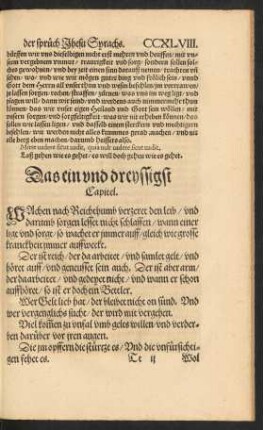 der sprüch Jhesu Syrachs. CCXLVIII.
dürffen wir vns dieselbigen nicht erst mehren vnd heuffen, mit vn-
serm vergebnem vnmut, traurigkeit vnd sorg, sondern sollen sol-
ches gewohnen, vnd der zeit einen sind darauß nemen, trachten
sitzen, wo, vnd wie wir mögen gantz rüwig vnd frölich sein, vnd
Gott dem Herrn all vnser thun vnd wesen befelchen, jn vertrawen,
vnd jn sorgen, rathen, straffen, zürnen, was vns im weg ligt, vnd
wir werden auch nimmermehr thun
können, das wir vnser eigen Heiland vnd Gott sein wöllen, mit
vnsern sorgen, vnd sorgfeltigkeit, was wir nit erheben können, das
sollen wir lassen ligen, vnd dasselb einen stercken vnd mechtigern
befelhen, wir werden nicht alles krummes gerad machen, vnd nit
alle berg eben machen, darumb heisset es also.
Mitte vadere sicut vadit, quia vult vadere sicut vadit,
Laß gehen wie es gehet, es will doch gehen wie es gehet.
Das ein vnd dreyssigst
Capitel.
WAchen nach Reichthumb verzeret den leib, vnd
darumb sorgen lesset nicht schlaffen, wann einer
ligt vnd sorgt, so wachet er jmmer auff, gleich wie grosse
kranckheit jmmer auffweckt.
Der ist reich, der da arbeitet, vnd samlet gelt, vnd
höret auff, vnd geneusset sein auch. Der ist aber arm,
der da arbeitet, vnd gedeyet nicht, vnd wann er schon
auffhöret, so ist er doch ein Bettler.
Wer Gelt lieb hat, der bleibet nicht on sünd. Vnd
wer vergenglichs sucht, der wird mit vergehen.
Viel kommen zu vnfal vmb gelts willen, vnd verder-
ben darüber vor jren augen.
Die jm opffern die stürtzt es, Vnd die vnfürsichti-
gen fehet es.
Tt ij Wol